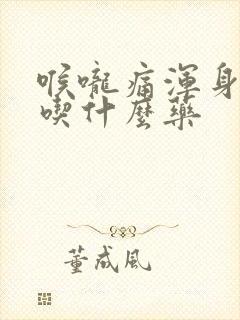 喉嚨痛渾身
喫什麼藥
董成風